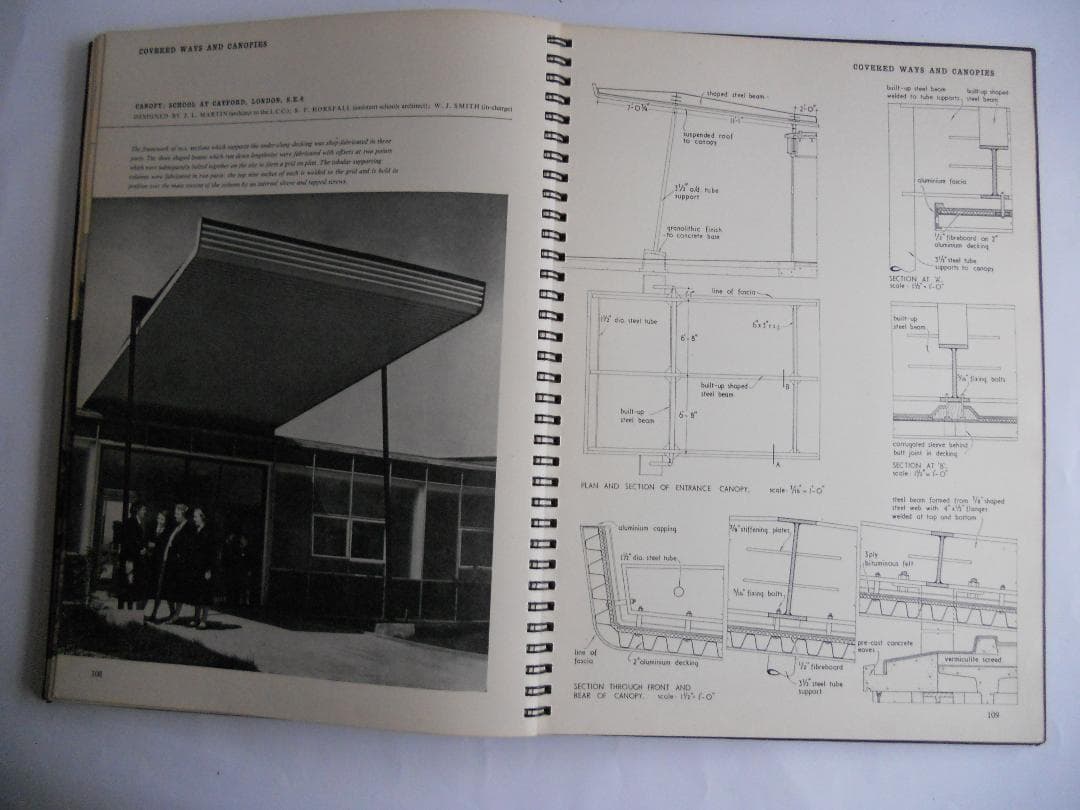 COVERED WAYS AND CANOPIES
CANOPY: SCHOOL AT CATFORD, LONDON, S.E.6
DESIGNED BY J. L. MARTIN (architect to the L.C.C.); S. F. HORSFALL (assistant schools architect); W. J. SMITH (in-charge)
The framework of m.s. sections which supports the under-slung decking was shop-fabricated in three
parts. The three shaped beams which run down lengthwise were fabricated with offsets at two points
which were subsequently bolted together on the site to form a grid on plan. The tubular supporting
columns were fabricated in two parts: the top nine inches of each is welded to the grid and is held in
position over the main section of the column by an internal sleeve and tapped screws.
108
COVERED WAYS AND CANOPIES
shaped steel beam
7'-0¾"
11'-1"
2'-0"
suspended roof
to canopy
3½" o/d. tube
support
granolithic finish
to concrete base
line of fascia
1½" dia. steel tube
6'-8"
built-up shaped
steel beam
B
built-up
steel beam
6'-8"
A
PLAN AND SECTION OF ENTRANCE CANOPY. scale: 1/16" = 1'-0"
built-up steel beam
welded to tube supports
built-up shaped
steel beam
aluminium fascia
½" fibreboard on 2"
aluminium decking
3½" steel tube
supports to canopy
SECTION AT 'A'.
scale: 1½" = 1'-0"
built-up
steel beam
5/16" fixing bolts
corrugated sleeve behind
butt joint in decking
SECTION AT 'B'.
scale: 1½" = 1'-0"
steel beam formed from ⅜" shaped
steel web with 4" x ½" flanges
welded at top and bottom
aluminium capping
1½" dia. steel tube
line of
fascia
2" aluminium decking
⅜" stiffening plates
5/16" fixing bolts
½" fibreboard
3½" steel tube
support
3 ply
bituminous felt
pre-cast concrete
eaves
vermiculite screed
SECTION THROUGH FRONT AND
REAR OF CANOPY. scale: 1½" = 1'-0"
109